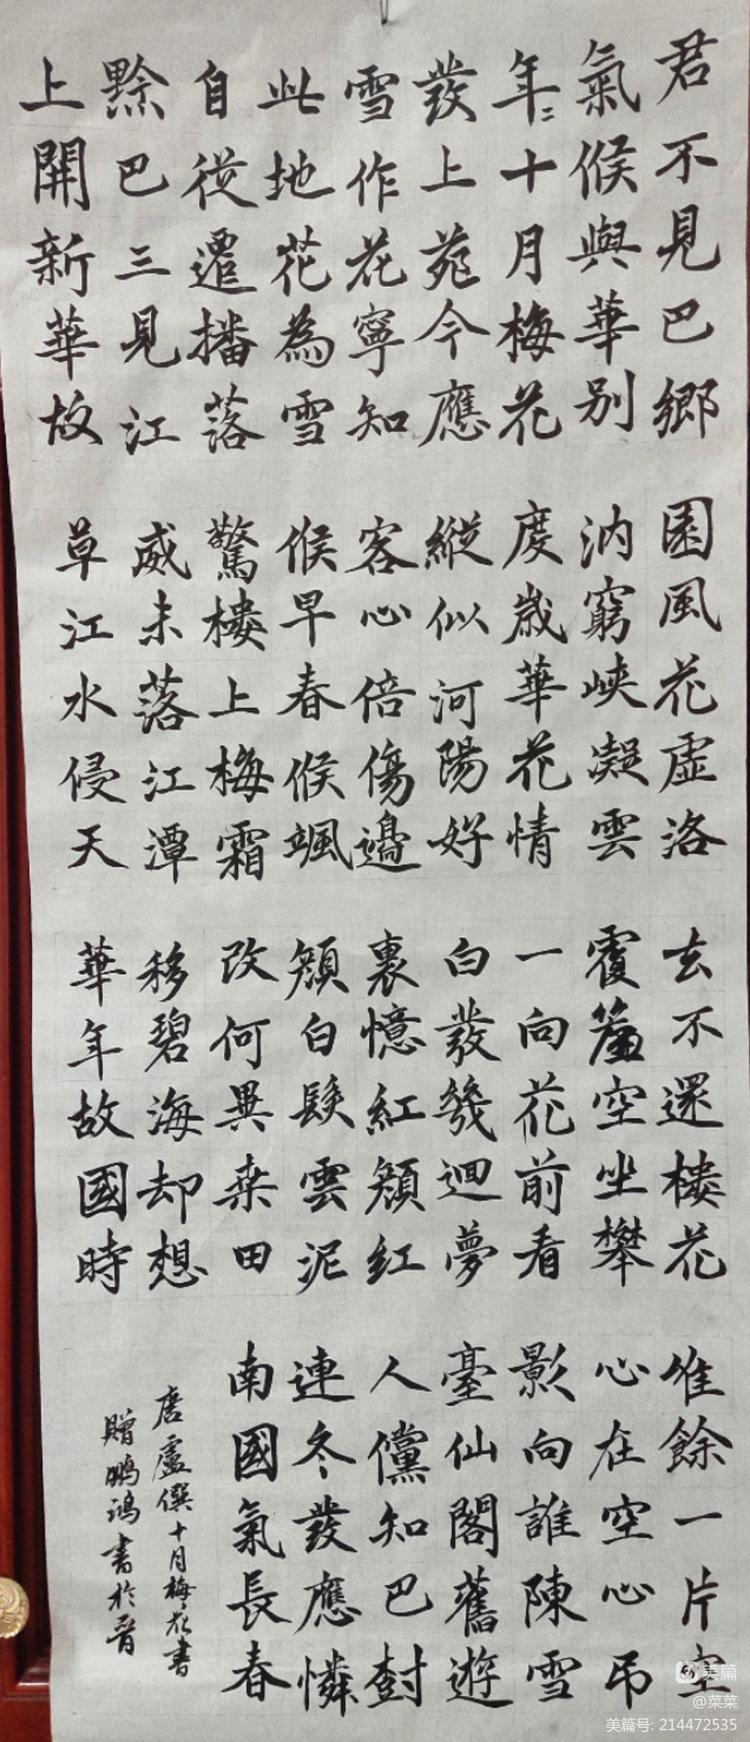 君不見巴鄉
氣候與華別
年々十月梅花
發上苑今應
雪作花寧知
此地花為雪
自從遷播落
黔巴三見江
上開新華故
園風花虛洛
汭窮峽凝雲
度歲華花情
縱似河陽好
客心倍傷邊
候早春候颯
驚樓上梅霜
威未落江潭
草江水侵天
去不還樓花
覆簷空坐攀
一向花前看
白發幾迴夢
裏憶紅顏紅
顏白髮雲泥
改何異桑田
移碧海却想
華年故國時
唯餘一片空
心在空心弔
影向誰陳雪
臺仙閣舊遊
人儻知巴樹
連冬發應憐
南國氣長春
唐盧僎十月梅花書
贈鵬鴻書於晉
美篇
@菜菜
美篇号: 214472535